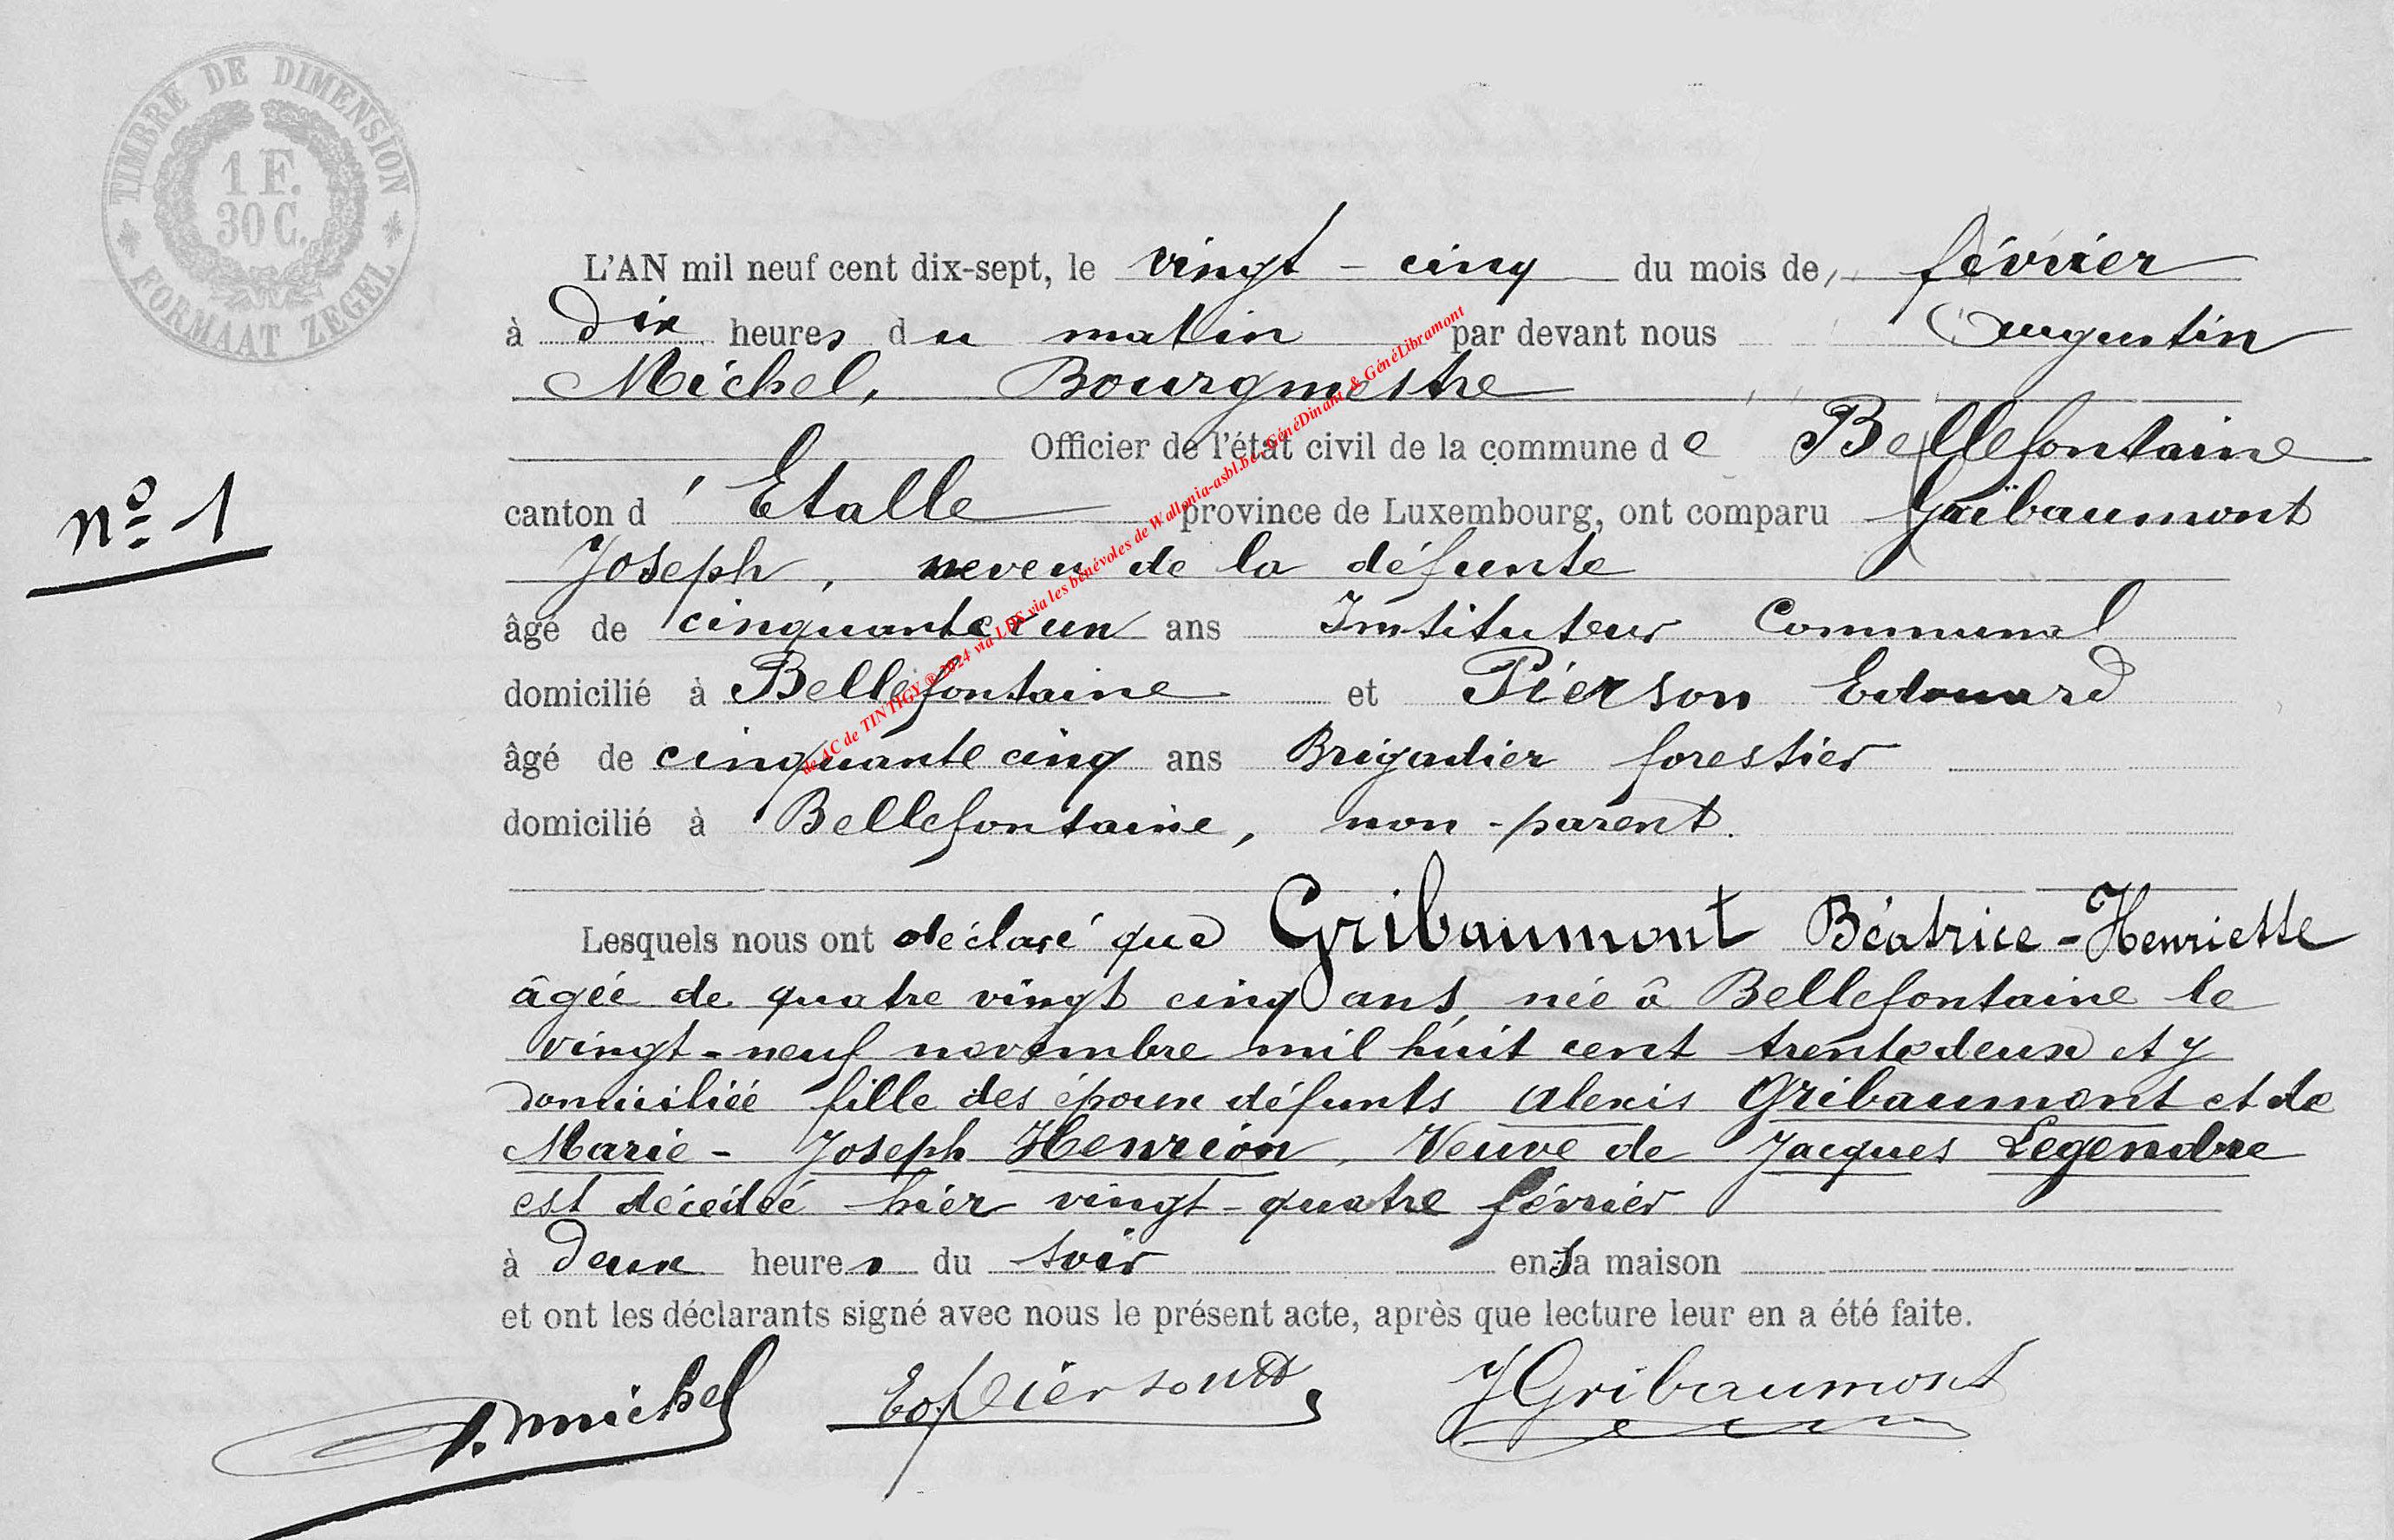 TIMBRE DE DIMENSION
1 F.
30 C.
FORMAAT ZEGEL
L'AN mil neuf cent dix-sept, le vingt - cinq du mois de février
à dix heures du matin par devant nous Augustin
Michel, Bourgmestre
Officier de l'état civil de la commune de Bellefontaine
canton d'Etalle province de Luxembourg, ont comparu Gribaumont
nº 1
Joseph, neveu de la défunte
âgé de cinquante et un ans Instituteur Communal
domicilié à Bellefontaine et Pierson Edouard
âgé de cinquante cinq ans Brigadier forestier
domicilié à Bellefontaine, non-parent.
Lesquels nous ont déclaré que Gribaumont Béatrice-Henriette
âgée de quatre vingt cinq ans, née à Bellefontaine le
vingt-neuf novembre mil huit cent trente deux et y
domiciliée fille des époux défunts Alexis Gribaumont et de
Marie-Joseph Henrion, Veuve de Jacques Legendre
est décédée hier vingt-quatre février
à deux heures du soir en sa maison
et ont les déclarants signé avec nous le présent acte, après que lecture leur en a été faite.
A. Michel Ed Pierson JGribaumont
de AC de TINTIGY ® 2024 via LDS via les bénévoles de Wallonia-asbl.be, GénéDinant & GénéLibramont